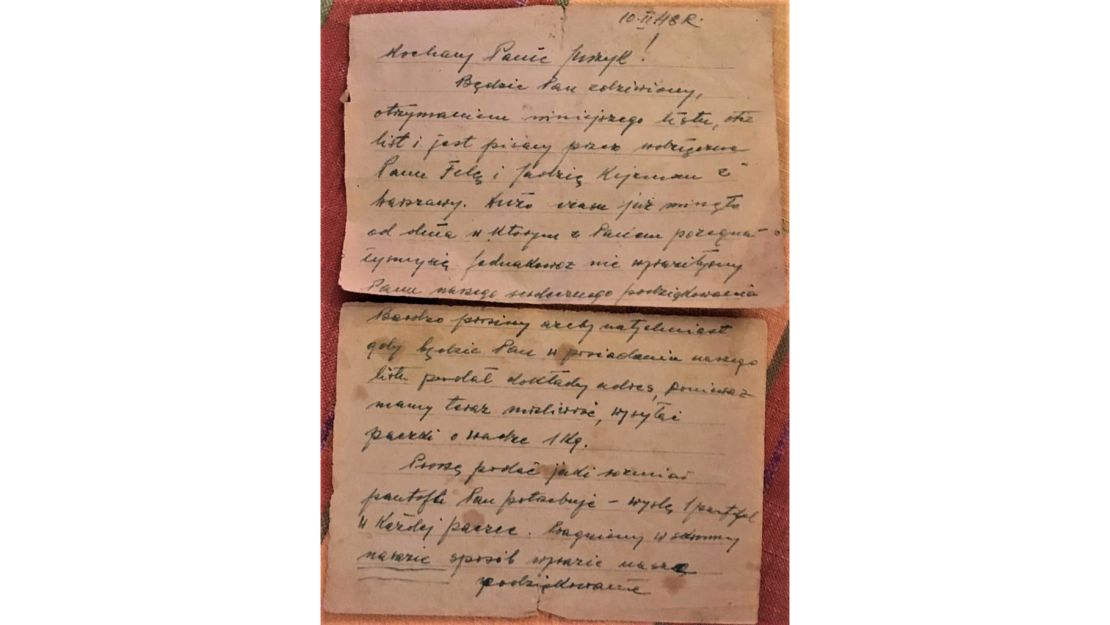 10.II.48 R.
Kochany Panie Józyk!
Będzie Pan zdziwiony,
otrzymaniem niniejszego listu, otóż
list i jest pisany przez wdzięczne
Panu Felę i Jadzię z
Warszawy. Dużo czasu już minęło
od dnia w którym z Panem pożegna-
łyśmy się jednakowoż nie wyraziłyśmy
Panu naszego serdecznego podziękowania
Bardzo prosimy ażeby natychmiast
gdy będzie Pan w posiadaniu naszego
listu podał dokładny adres, ponieważ
mamy teraz możliwość, wysyłać
paczki o wadze 1 Kg.
Proszę podać jaki rozmiar
pantofli Pan potrzebuje – wyślę 1 pantfel
w każdej paczce. Pragniemy w skromny
narazie sposób wyrazić naszą
podziękowanie